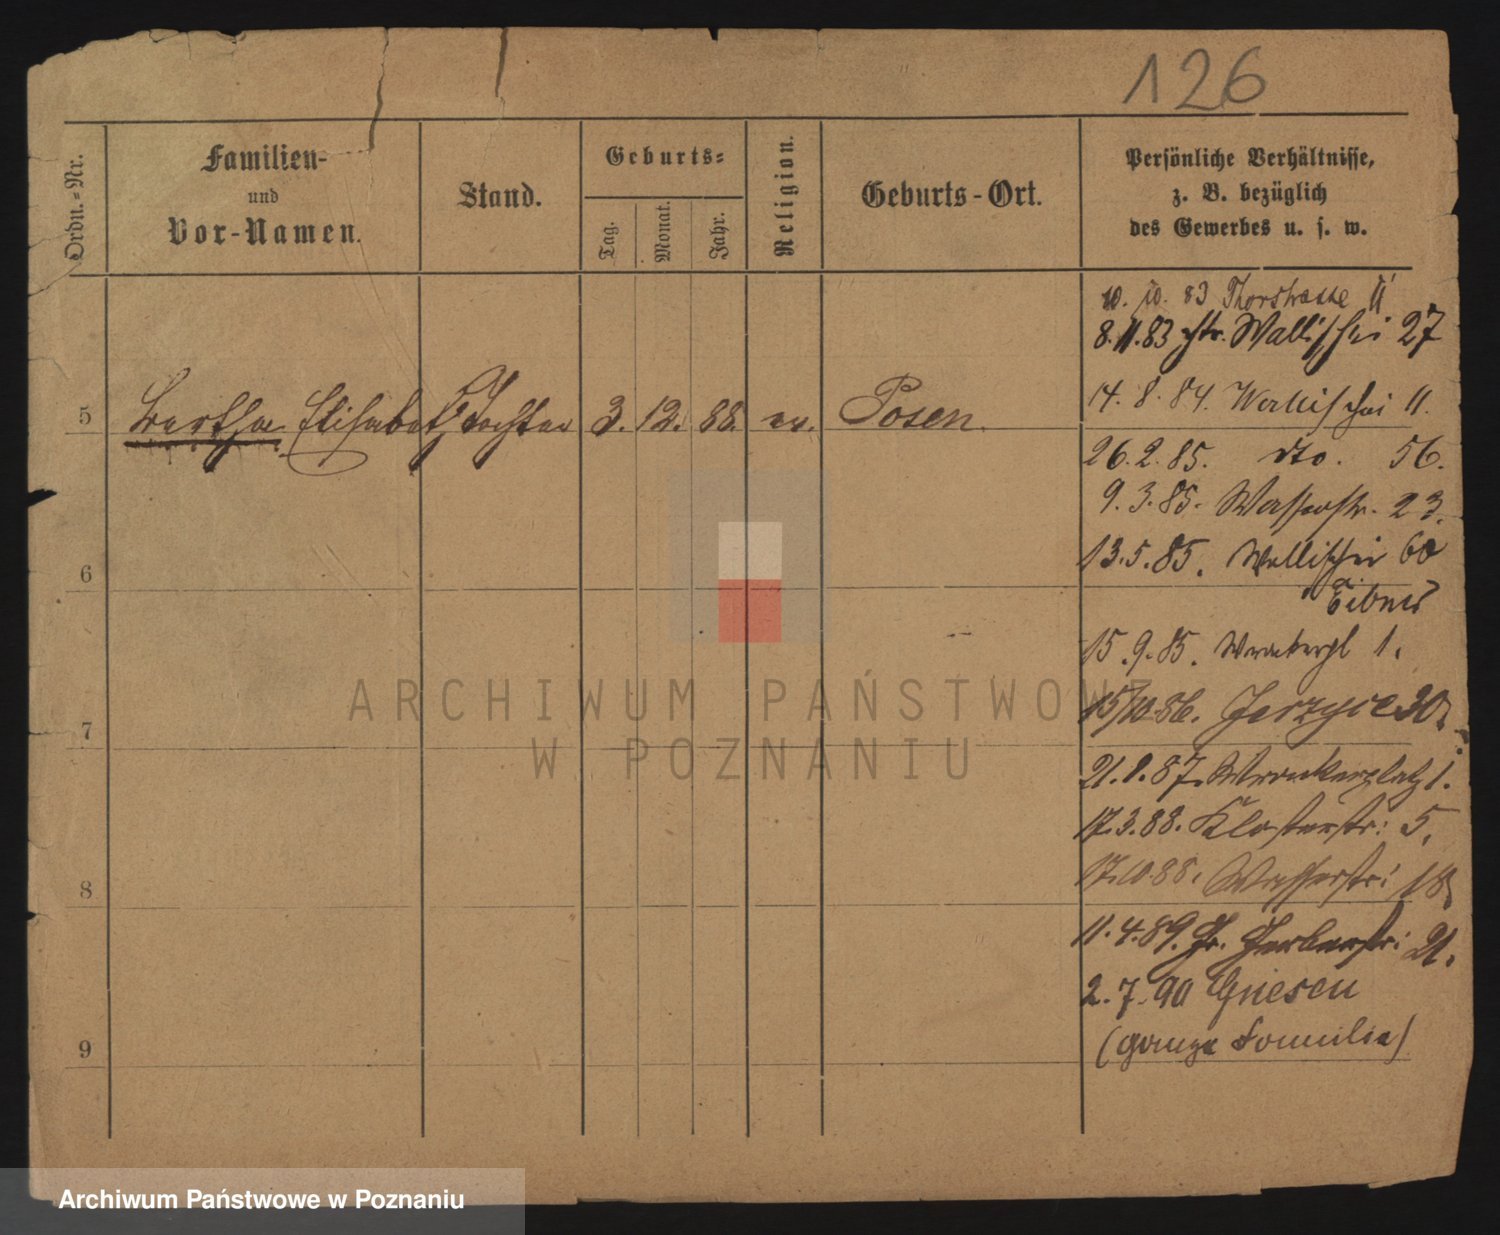 126
Ordn.-Nr.
Familien-
und
Vor-Namen.
Stand.
Geburts-
Tag.
Monat.
Jahr.
Religion.
Geburts-Ort.
Persönliche Verhältnisse,
z. B. bezüglich
des Gewerbes u. s. w.
10. 10. 83 Thorstrasse 11
8.11.83 Wallischei 27
5 Bertha Elisabeth Tochter 3. 12. 88. ev. Posen.
14. 8. 84. Wallischei 11.
26. 2. 85. dto. 56.
9. 3. 85. Wasserstr. 23.
6
13. 5. 85. Wallischei 60
15. 9. 85. 1.
ARCHIWUM PAŃSTWOWE
W POZNANIU
7
15/10 86. Jerzyce 30.
21. 8. 87. Wronkerplatz 1.
17. 3. 88. Klosterstr: 5.
8
17. 10. 88. Wasserstr: 18
11. 4. 89. Gr. Gerberstr: 21.
2. 7. 90 Gnesen
9 (ganze Familie)
Archiwum Państwowe w Poznaniu